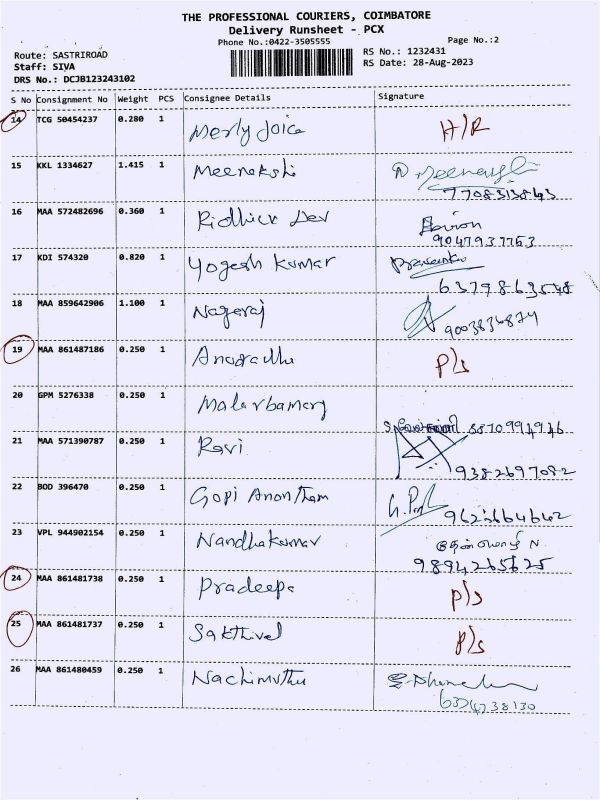 THE PROFESSIONAL COURIERS, COIMBATORE
Delivery Runsheet - PCX
Phone No.:0422-3505555
Page No.:2
Route: SASTRIROAD
RS No.: 1232431
Staff: SIVA
RS Date: 28-Aug-2023
DRS No.: DCJB123243102
S No Consignment No Weight PCS Consignee Details Signature
14 TCG 50454237 0.280 1 Merly Joice H/R
15 KKL 1334627 1.415 1 Meenakshi
7708313843
16 MAA 572482696 0.360 1 Ridhick Dev
9047937763
17 KDI 574320 0.820 1 Yogesh Kumar
63798 63548
18 MAA 859642906 1.100 1 Nagaraj
9003834874
19 MAA 861487186 0.250 1 Anuradha P/s
20 GPM 5276338 0.250 1
8870994946
21 MAA 571390787 0.250 1 Ravi
9382697082
22 BOD 396470 0.250 1 Gopi Anantham
23 VPL 944902154 0.250 1 Nandhakumar N
9894265625
24 MAA 861481738 0.250 1 Pradeepa P/s
25 MAA 861481737 0.250 1 Sakthivel P/s
26 MAA 861480459 0.250 1 Nachimuthu